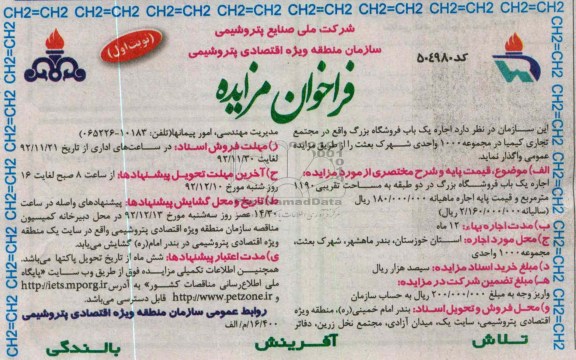 CH2=CH2 CH2=CH2 CH2=CH2 CH2=CH2 CH2=CH2 CH2=CH2 CH2=CH2
شرکت ملی صنایع پتروشیمی
سازمان منطقه ویژه اقتصادی پتروشیمی
کد ۵۰۴۹۸۰
(نوبت اول)
فراخوان مزایده
این سازمان در نظر دارد اجاره یک باب فروشگاه بزرگ واقع در مجتمع
تجاری کیمیا در مجموعه ۱۰۰۰ واحدی شهرک بعثت را از طریق مزایده
عمومی واگذار نماید.
الف) موضوع، قیمت پایه و شرح مختصری از مورد مزایده:
اجاره یک باب فروشگاه بزرگ در دو طبقه به مساحت تقریبی ۱۱۹۰
مترمربع و قیمت پایه اجاره ماهیانه ۱۸۰/۰۰۰/۰۰۰ ریال
(سالیانه ۲/۱۶۰/۰۰۰/۰۰۰ ریال)
ب) مدت اجاره بهاء: ۱۲ ماه
ج) محل مورد اجاره: استان خوزستان، بندر ماهشهر، شهرک بعثت،
مجموعه ۱۰۰۰ واحدی
د) مبلغ خرید اسناد مزایده: سیصد هزار ریال
هـ) مبلغ تضمین شرکت در مزایده:
واریز وجه به مبلغ ۲۰۰/۰۰۰/۰۰۰ ریال به حساب سازمان
و) محل فروش و تحویل اسناد: بندر امام خمینی(ره)، منطقه ویژه
اقتصادی پتروشیمی، سایت یک، میدان آزادی، مجتمع نخل زرین، دفاتر
مدیریت مهندسی، امور پیمانها(تلفن: ۱۰۱۸۳-۰۶۵۲۲۶)
ز) مهلت فروش اسناد: در ساعت‌های اداری از تاریخ ۹۲/۱۱/۲۱
لغایت ۹۲/۱۱/۳۰
ح) آخرین مهلت تحویل پیشنهادها: از ساعت ۸ صبح لغایت ۱۶
روز شنبه مورخ ۹۲/۱۲/۱۰
ط) تاریخ و محل گشایش پیشنهادها: پیشنهادهای واصله در ساعت
۱۴/۳۰ عصر روز سه‌شنبه مورخ ۹۲/۱۲/۱۳ در محل دبیرخانه کمیسیون
مناقصه سازمان منطقه ویژه اقتصادی پتروشیمی واقع در سایت یک منطقه
ویژه اقتصادی پتروشیمی در بندر امام(ره) گشایش می‌یابد.
ی) مدت اعتبار پیشنهادها: شش ماه از تاریخ تحویل پاکتها می‌باشد.
همچنین اطلاعات تکمیلی مزایده فوق از طریق وب سایت «پایگاه
ملی اطلاع‌رسانی مناقصات کشور» به آدرس http://iets.mporg.ir
و http://www.petzone.ir قابل دسترسی می‌باشد.
روابط عمومی سازمان منطقه ویژه اقتصادی پتروشیمی
۱۶/۴۰۰/م/الف
تلاش آفرینش بالندگی